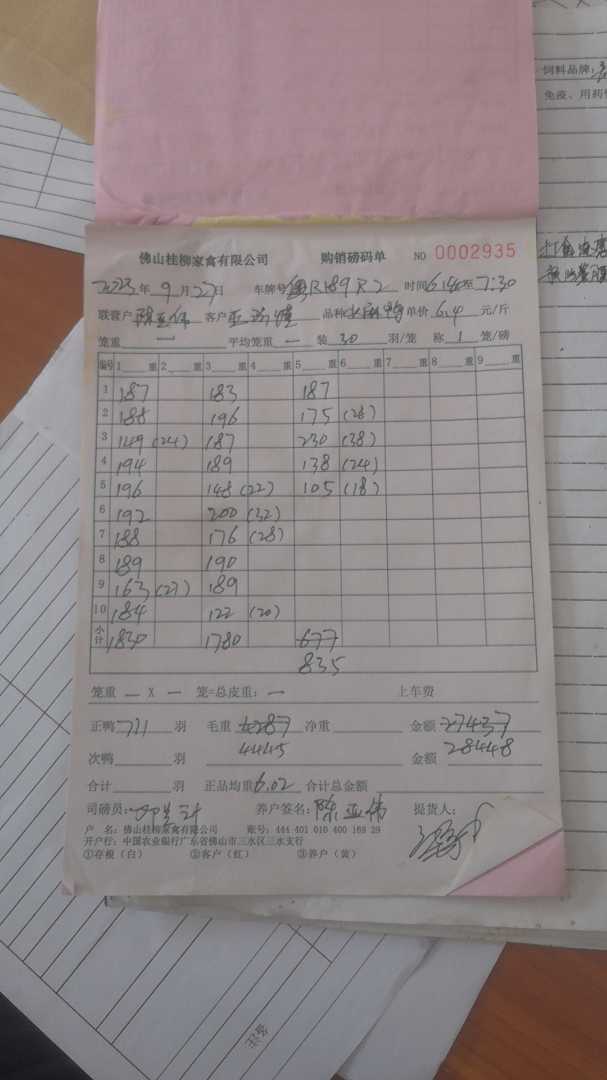 饲料品牌：
免疫、用药
佛山桂柳家禽有限公司 购销磅码单 NO 0002935
2023年 9月27日 车牌号 粤R189R2 时间 6:40至7:30
联营户 陈亚伟 客户 品种 单价 6.4 元/斤
笼重 一 平均笼重 一 装 30 羽/笼 称 1 笼/磅
编号 1 重 2 重 3 重 4 重 5 重 6 重 7 重 8 重 9 重
1 187 183 187
2 188 196 175 (28)
3 149 (24) 187 230 (38)
4 194 189 138 (24)
5 196 148 (22) 105 (18)
6 192 200 (32)
7 188 176 (28)
8 189 190
9 163 (27) 189
10 184 122 (20)
小计 1830 1780 677
835
笼重 一 X 一 笼=总皮重： 一 上车费
正鸭 711 羽 毛重 4287 净重 金额 27437
4445 28448
次鸭 羽 金额
合计 羽 正品均重 6.02 合计总金额
司磅员： 养户签名： 陈亚伟 提货人：
户 名：佛山桂柳家禽有限公司 账号：444 401 010 400 169 29
开户行：中国农业银行广东省佛山市三水区三水支行
①存根（白） ②客户（红） ③养户（黄）
备注